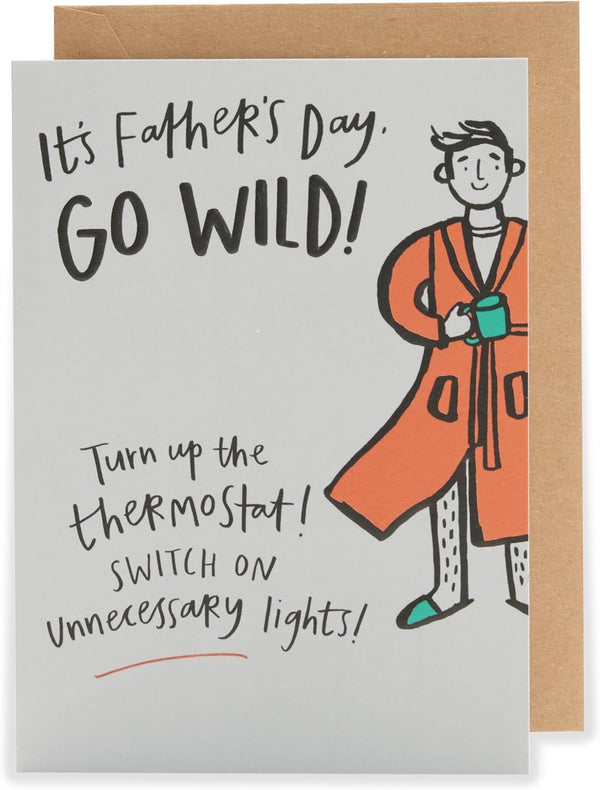 It's Father's Day.
GO WILD!
Turn up the
thermostat!
SWITCH ON
unnecessary lights!